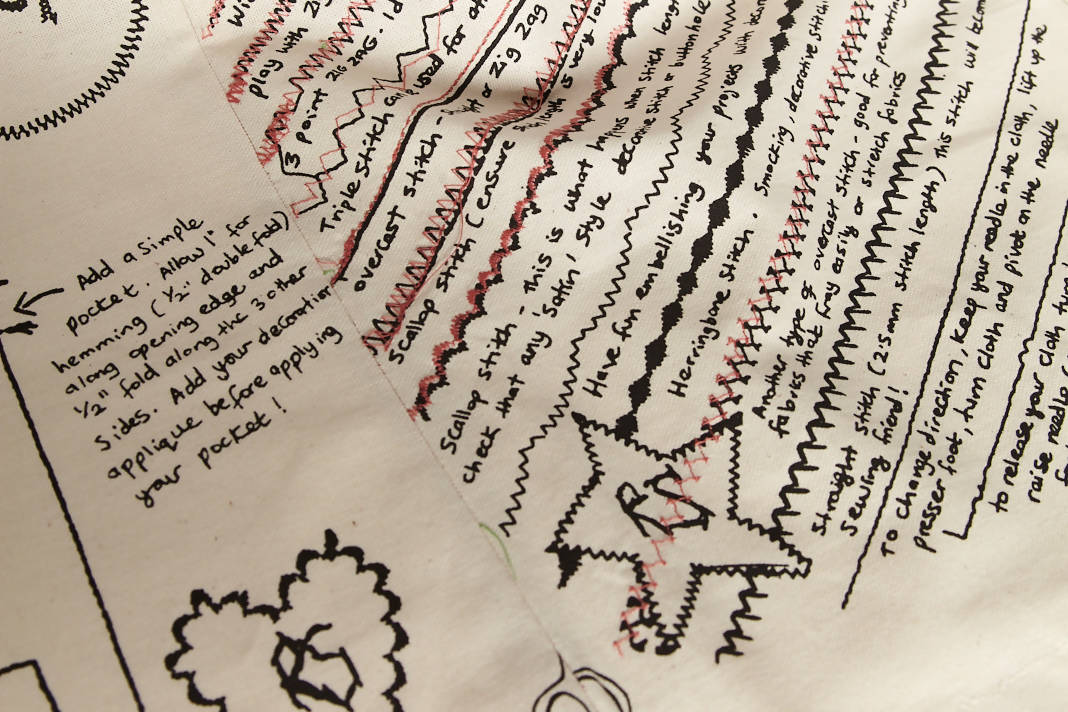 Add a simple
pocket. Allow 1" for
hemming (1/2" double fold)
along opening edge and
1/2" fold along the 3 other
sides. Add your decoration
applique before applying
your pocket!
play with
3 point ZIG ZAG.
Triple Stitch
used for
overcast stitch -
or Zig Zag
Scallop stitch (ensure
length is very
Scallop stitch - this is what happens when stitch length
check that any satin, style decorative stitch or buttonhole
Have fun embellishing your projects with
Herringbone stitch. Smocking, decorative
Another type of overcast stitch - good for preventing
fabrics that fray easily or stretch fabrics
Straight stitch (2.5mm stitch length) this stitch will
sewing friend!
To change direction, keep your needle in the cloth, lift up the
presser foot, turn cloth and pivot on the needle
to release your cloth
raise needle